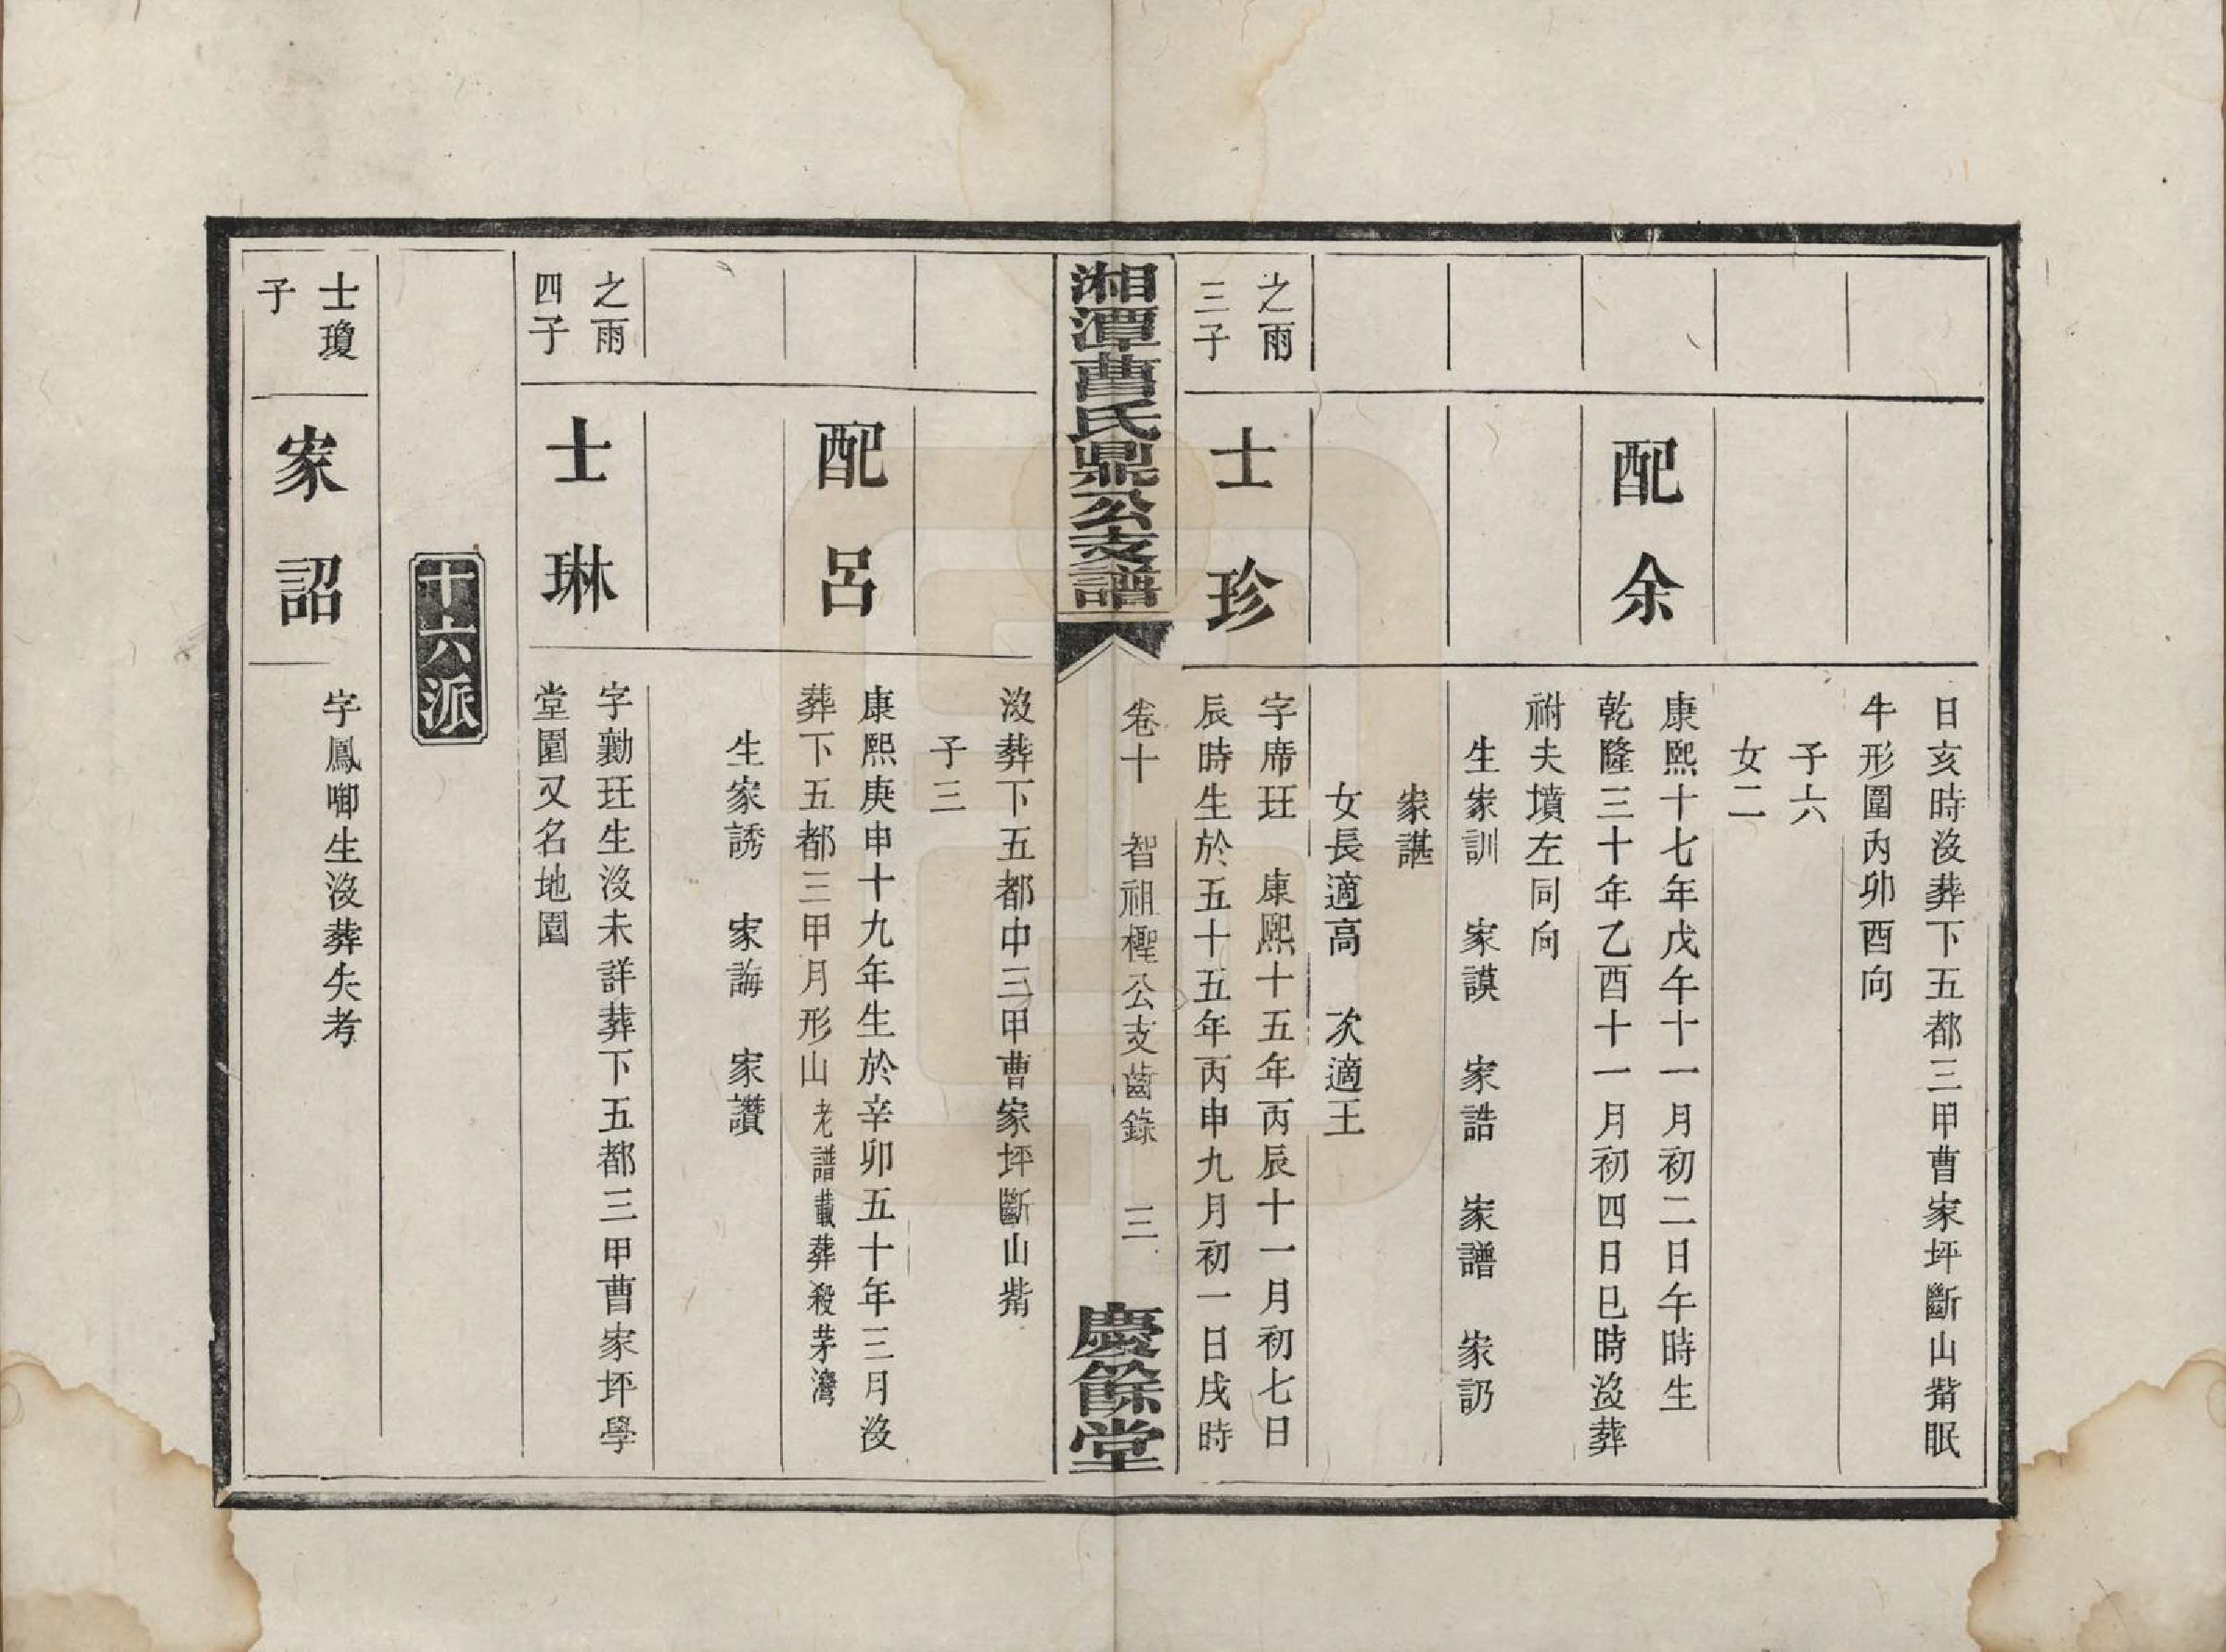 日亥時沒葬下五都三甲曹家坪斷山觜眠
牛形圍內卯酉向
子六
女二
配余
康熙十七年戊午十一月初二日午時生
乾隆三十年乙酉十一月初四日巳時沒葬
祔夫墳左同向
生家訓 家謨 家誥 家譜 家訒
家諶
女長適高 次適王
之雨
三子
士珍
字席玨 康熙十五年丙辰十一月初七日
辰時生於五十五年丙申九月初一日戌時
湘潭曹氏鼎公支譜
卷十 智祖檉公支齒錄 三
慶餘堂
沒葬下五都中三甲曹家坪斷山觜
子三
配呂
康熙庚申十九年生於辛卯五十年三月沒
葬下五都三甲月形山老譜載葬殺茅灣
生家誘 家誨 家讚
之雨
四子
士琳
字勷玨生沒未詳葬下五都三甲曹家坪學
堂園又名地園
十六派
士瓊
子
家詔
字鳳啣生沒葬失考